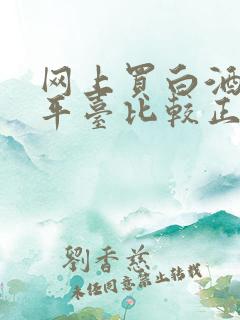 网上買白酒
平臺比較正
劉香慈
未经同意禁止转载